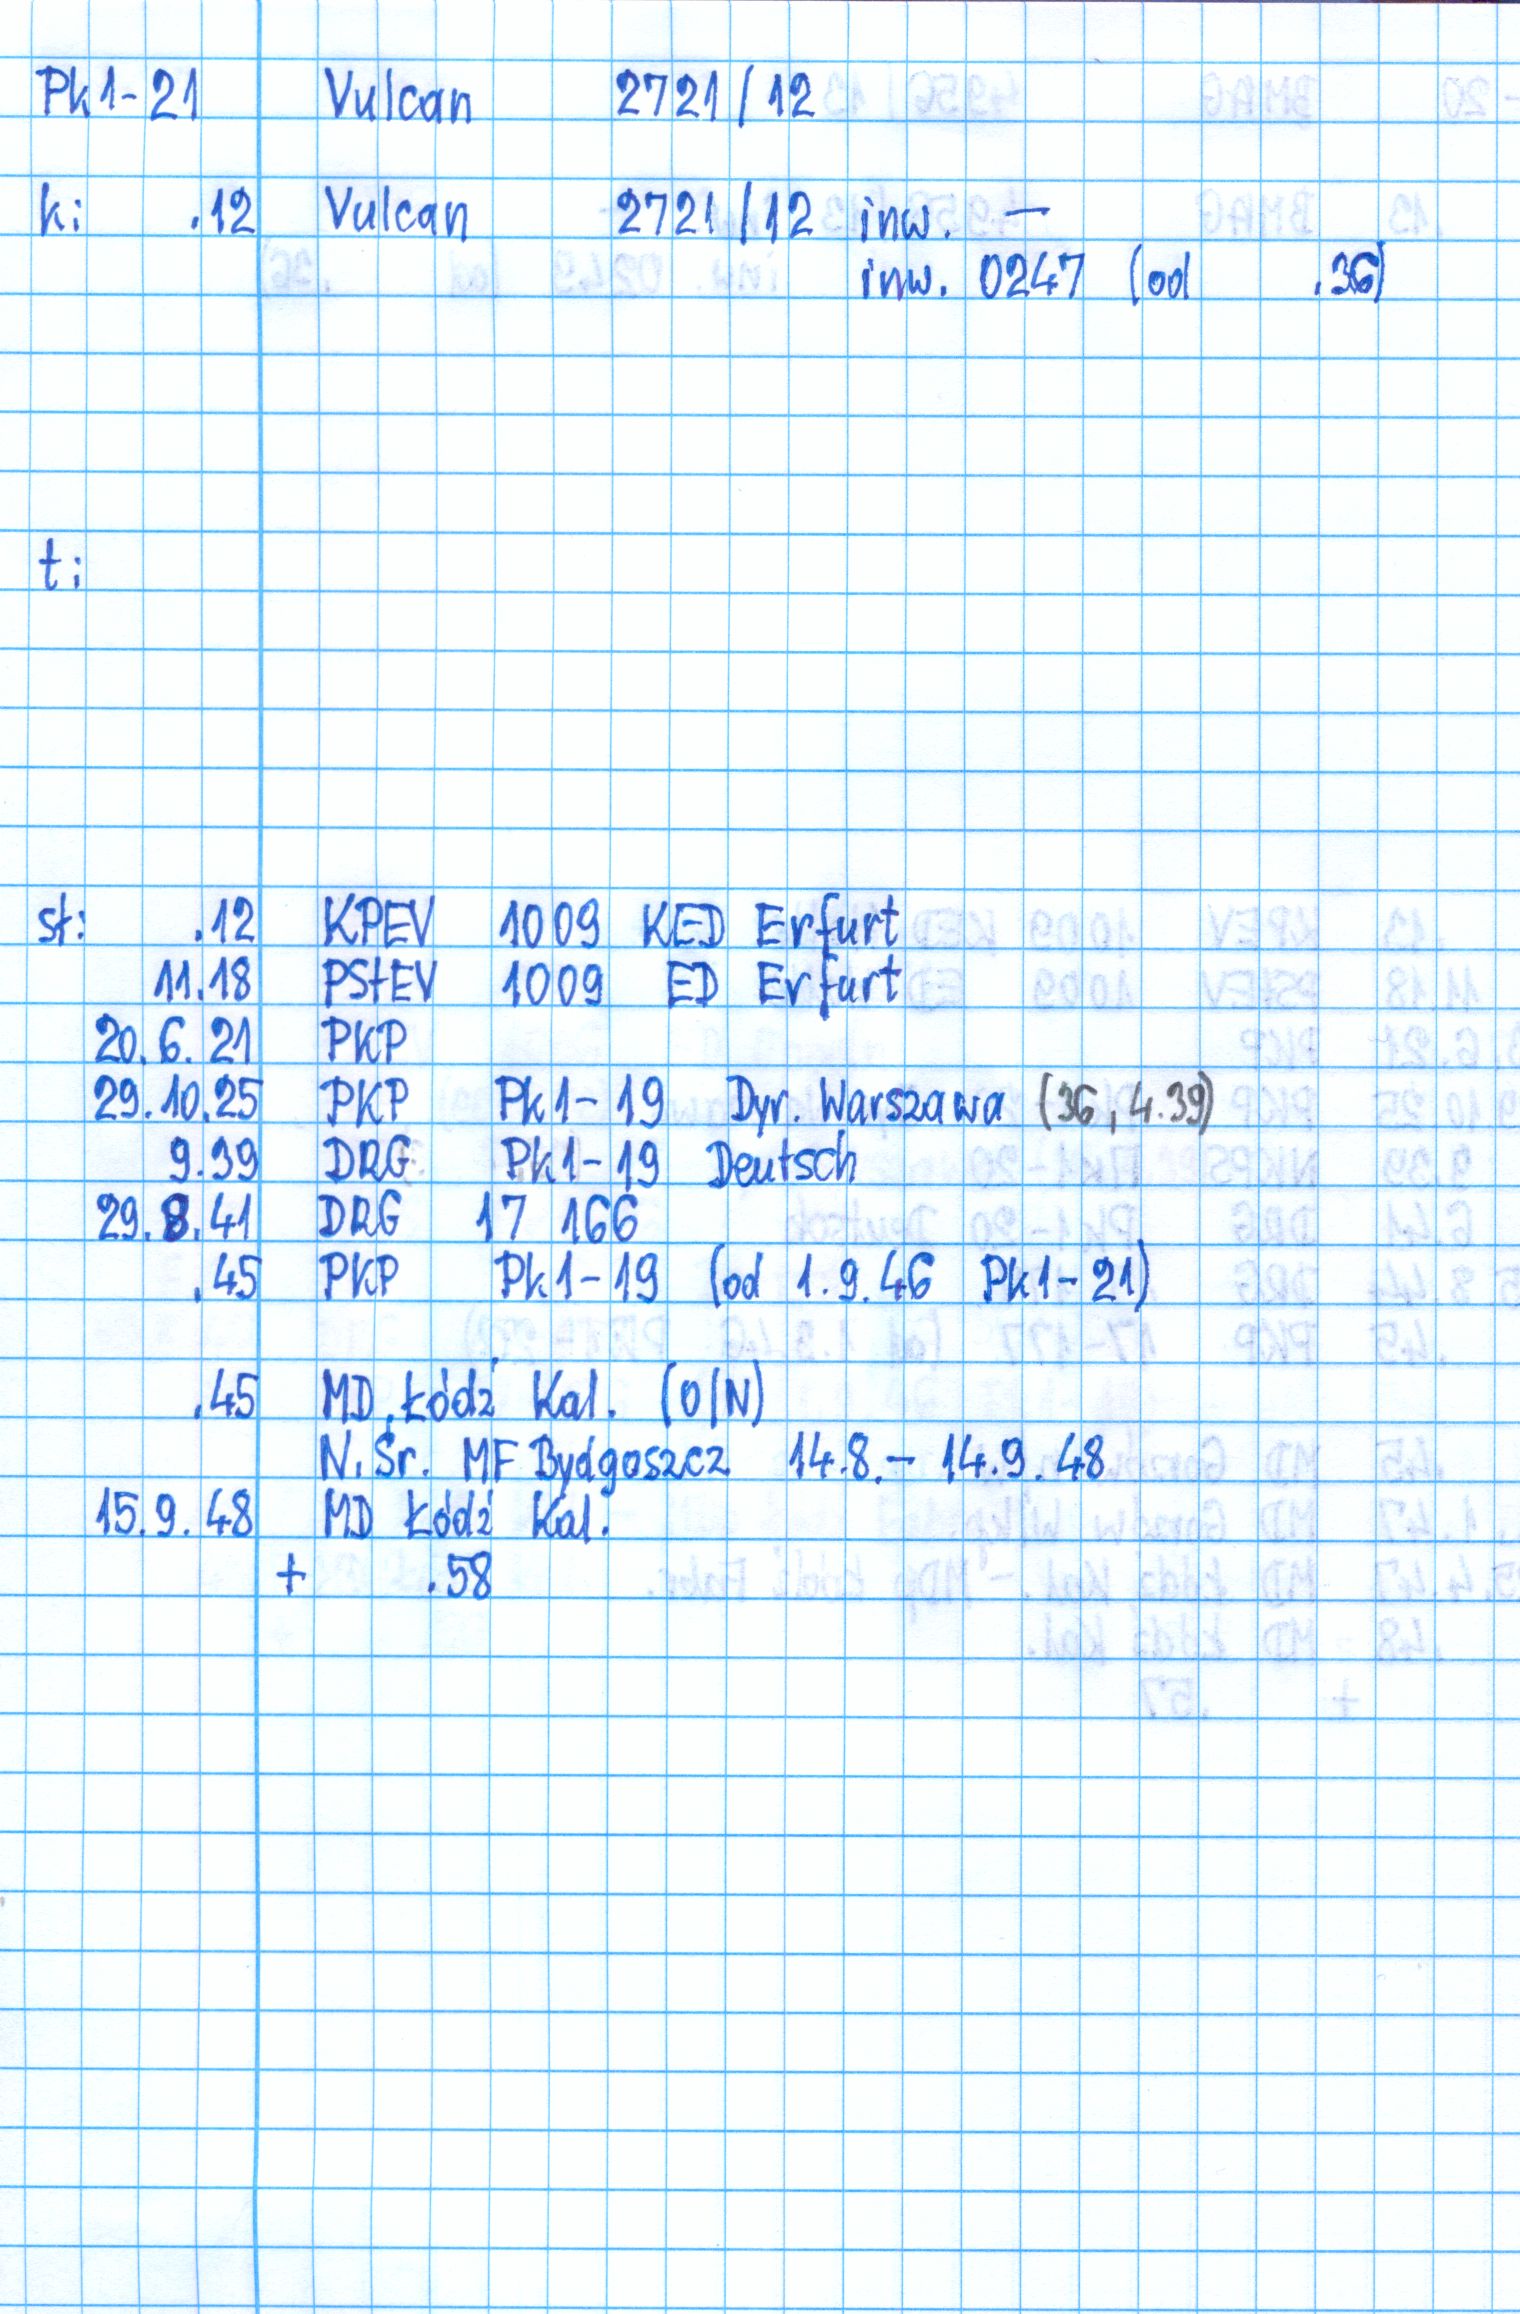 Pk1-21 Vulcan 2721/12
k: .12 Vulcan 2721/12 inw. —
inw. 0247 (od .36)
t:
st: .12 KPEV 1009 KED Erfurt
11.18 PStEV 1009 ED Erfurt
20.6.21 PKP
29.10.25 PKP Pk1-19 Dyr. Warszawa (36, 4.39)
9.39 DRG Pk1-19 Deutsch
29.8.41 DRG 17 166
.45 PKP Pk1-19 (od 1.9.46 Pk1-21)
.45 MD Łódź Kal. (O/N)
N.Śr. MF Bydgoszcz 14.8.- 14.9.48
15.9.48 MD Łódź Kal.
+ .58